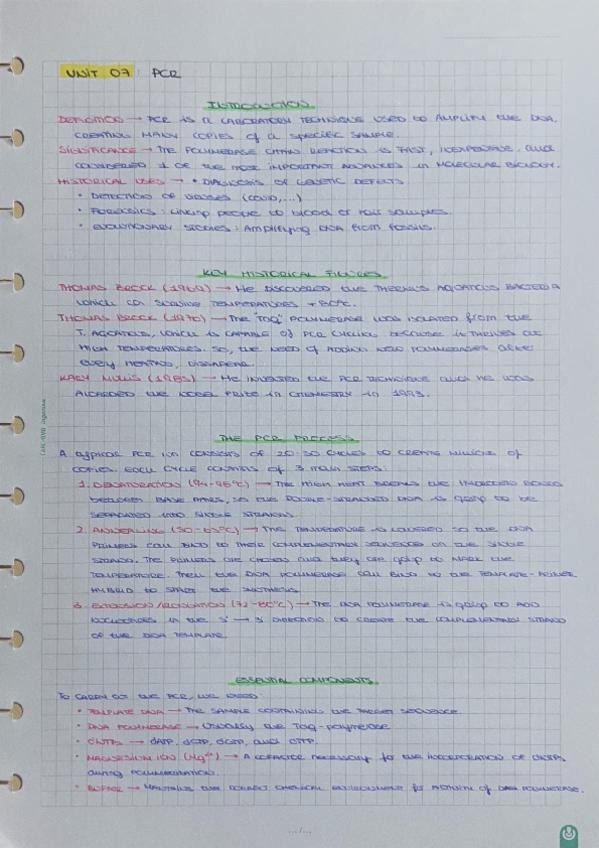 UNIT 07: PCR
INTRODUCTION
DEFINITION → PCR IS A LABORATORY TECHNIQUE USED TO AMPLIFY THE DNA,
CREATING MANY COPIES OF A SPECIFIC SAMPLE.
SIGNIFICANCE → THE POLYMERASE CHAIN REACTION IS FAST, INEXPENSIVE, AND
CONSIDERED 1 OF THE MOST IMPORTANT ADVANCES IN MOLECULAR BIOLOGY.
HISTORICAL USES → • DIAGNOSIS OF GENETIC DEFECTS
• DETECTION OF VIRUSES (COVID,...)
• FORENSICS: LINKING PEOPLE TO BLOOD OR HAIR SAMPLES.
• EVOLUTIONARY STUDIES: AMPLIFYING DNA FROM FOSSILS.
KEY HISTORICAL FIGURES
THOMAS BROCK (1969) → HE DISCOVERED THE THERMUS AQUATICUS BACTERIA
WHICH CAN SURVIVE TEMPERATURES +80ºC.
THOMAS BROCK (1976) → THE "TAQ" POLYMERASE WAS ISOLATED FROM THE
T. AQUATICUS, WHICH IS CAPABLE OF PCR CYCLING BECAUSE IT THRIVES AT
HIGH TEMPERATURES. SO, THE NEED OF ADDING NEW POLYMERASES AFTER
EVERY HEATING, DISAPPEAR.
KARY MULLIS (1983) → HE INVENTED THE PCR TECHNIQUE AND HE WAS
AWARDED THE NOBEL PRIZE IN CHEMISTRY IN 1993.
THE PCR PROCESS
A TYPICAL PCR RUN CONSISTS OF 20-30 CYCLES TO CREATE MILLIONS OF
COPIES. EACH CYCLE CONSISTS OF 3 MAIN STEPS:
1. DENATURATION (94-96ºC) → THE HIGH HEAT BREAKS THE HYDROGEN BONDS
BETWEEN BASE PAIRS, SO THE DOUBLE-STRANDED DNA IS GOING TO BE
SEPARATED INTO SINGLE STRANDS.
2. ANNEALING (50-65ºC) → THE TEMPERATURE IS LOWERED SO THE DNA
PRIMERS CAN BIND TO THEIR COMPLEMENTARY SEQUENCES ON THE SINGLE
STRANDS. THE PRIMERS ARE CHOSEN AND THEY ARE GOING TO MARK THE
TEMPERATURE. THEN THE DNA POLYMERASE CAN BIND TO THE TEMPLATE-PRIMER
HYBRID TO START THE SYNTHESIS.
3. EXTENSION/ELONGATION (72-80ºC) → THE DNA POLYMERASE IS GOING TO ADD
NUCLEOTIDES IN THE 5' → 3' DIRECTION TO CREATE THE COMPLEMENTARY STRAND
OF THE DNA TEMPLATE.
ESSENTIAL COMPONENTS
TO CARRY OUT THE PCR, WE NEED:
• TEMPLATE DNA → THE SAMPLE CONTAINING THE TARGET SEQUENCE.
• DNA POLYMERASE → USUALLY THE TAQ-POLYMERASE
• DNTPS → dATP, dCTP, dGTP, AND dTTP.
• MAGNESIUM ION (Mg²⁺) → A COFACTOR NECESSARY FOR THE INCORPORATION OF DNTPS
DURING POLYMERIZATION.
• BUFFER → MAINTAINS THE CORRECT CHEMICAL ENVIRONMENT FOR ACTIVITY OF DNA POLYMERASE.
.../...